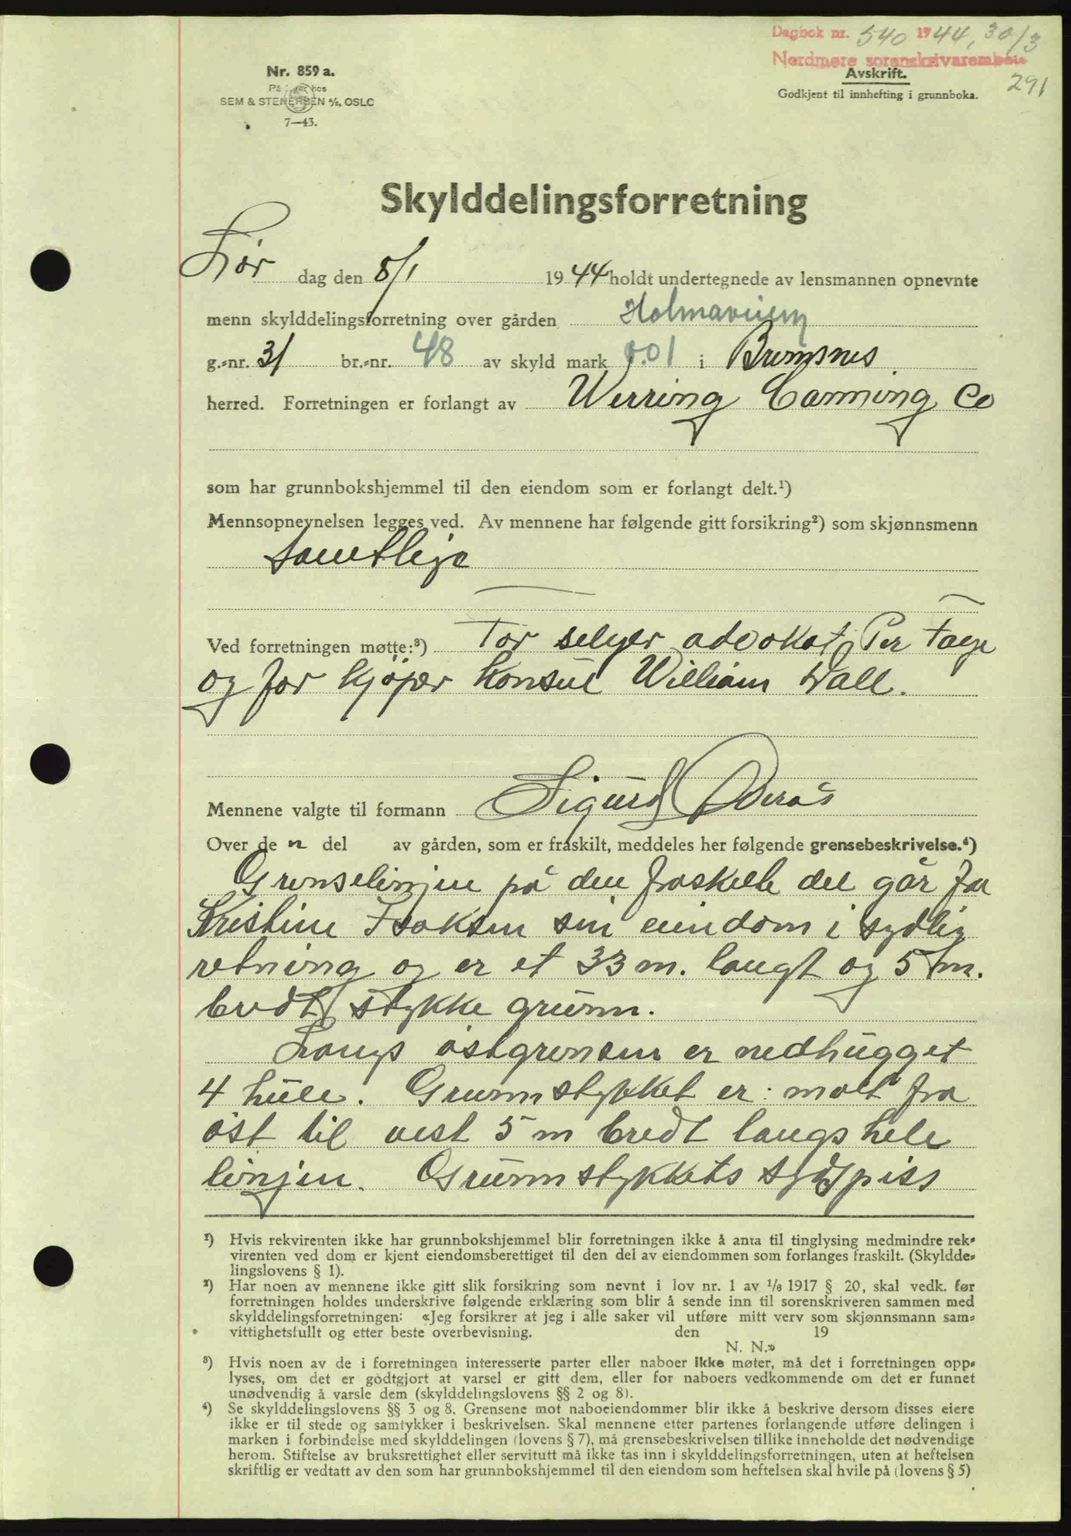 Dagbok nr. 540 1944, 30/3
Nordmøre sorenskrivarembete
291
Nr. 859 a.
På lager hos
SEM & STENERSEN A/S, OSLO
7—43.
Avskrift.
Godkjent til innhefting i grunnboka.
Skylddelingsforretning
Lør dag den 8/1 1944 holdt undertegnede av lensmannen opnevnte
menn skylddelingsforretning over gården
g.-nr. 31 br.-nr. 48 av skyld mark 0.01 i Bremsnes
herred. Forretningen er forlangt av Werring Canning Co
som har grunnbokshjemmel til den eiendom som er forlangt delt.¹)
Mennsopnevnelsen legges ved. Av mennene har følgende gitt forsikring²) som skjønnsmenn
samtlige
Ved forretningen møtte:³) For selger advokat Per
og for kjøper konsul William Dall.
Mennene valgte til formann Sigurd
Over de n del av gården, som er fraskilt, meddeles her følgende grensebeskrivelse.⁴)
Grenselinjen på den fraskilte del går fra
Kristine Isaksen sin eiendom i sydlig
retning og er et 33 m. langt og 5 m.
bredt stykke grunn.
Langs østgrensen er nedhugget
4 hull. Grunnstykket er malt fra
øst til vest 5 m bredt langs hele
linjen. Grunnstykkets sydspiss
¹) Hvis rekvirenten ikke har grunnbokshjemmel blir forretningen ikke å anta til tinglysing medmindre rek-
virenten ved dom er kjent eiendomsberettiget til den del av eiendommen som forlanges fraskilt. (Skyldde-
lingslovens § 1).
²) Har noen av mennene ikke gitt slik forsikring som nevnt i lov nr. 1 av 1/6 1917 § 20, skal vedk. før
forretningen holdes underskrive følgende erklæring som blir å sende inn til sorenskriveren sammen med
skylddelingsforretningen: «Jeg forsikrer at jeg i alle saker vil utføre mitt verv som skjønnsmann sam-
vittighetsfullt og etter beste overbevisning. den 19
N. N.»
³) Hvis noen av de i forretningen interesserte parter eller naboer ikke møter, må det i forretningen opp-
lyses, om det er godtgjort at varsel er gitt dem, eller for naboers vedkommende om det er funnet
unødvendig å varsle dem (skylddelingslovens §§ 2 og 8).
⁴) Se skylddelingslovens §§ 3 og 8. Grensene mot naboeiendommer blir ikke å beskrive dersom disses eiere
ikke er til stede og samtykker i beskrivelsen. Skal mennene etter partenes forlangende utføre delingen i
marken i forbindelse med skylddelingen (lovens § 7), må grensebeskrivelsen tillike inneholde det nødvendige
herom. Stiftelse av bruksrettighet eller servitutt må ikke tas inn i skylddelingsforretningen, uten at heftelsen
skriftlig er vedtatt av den som har grunnbokshjemmel til den eiendom som heftelsen skal hvile på (lovens § 5)